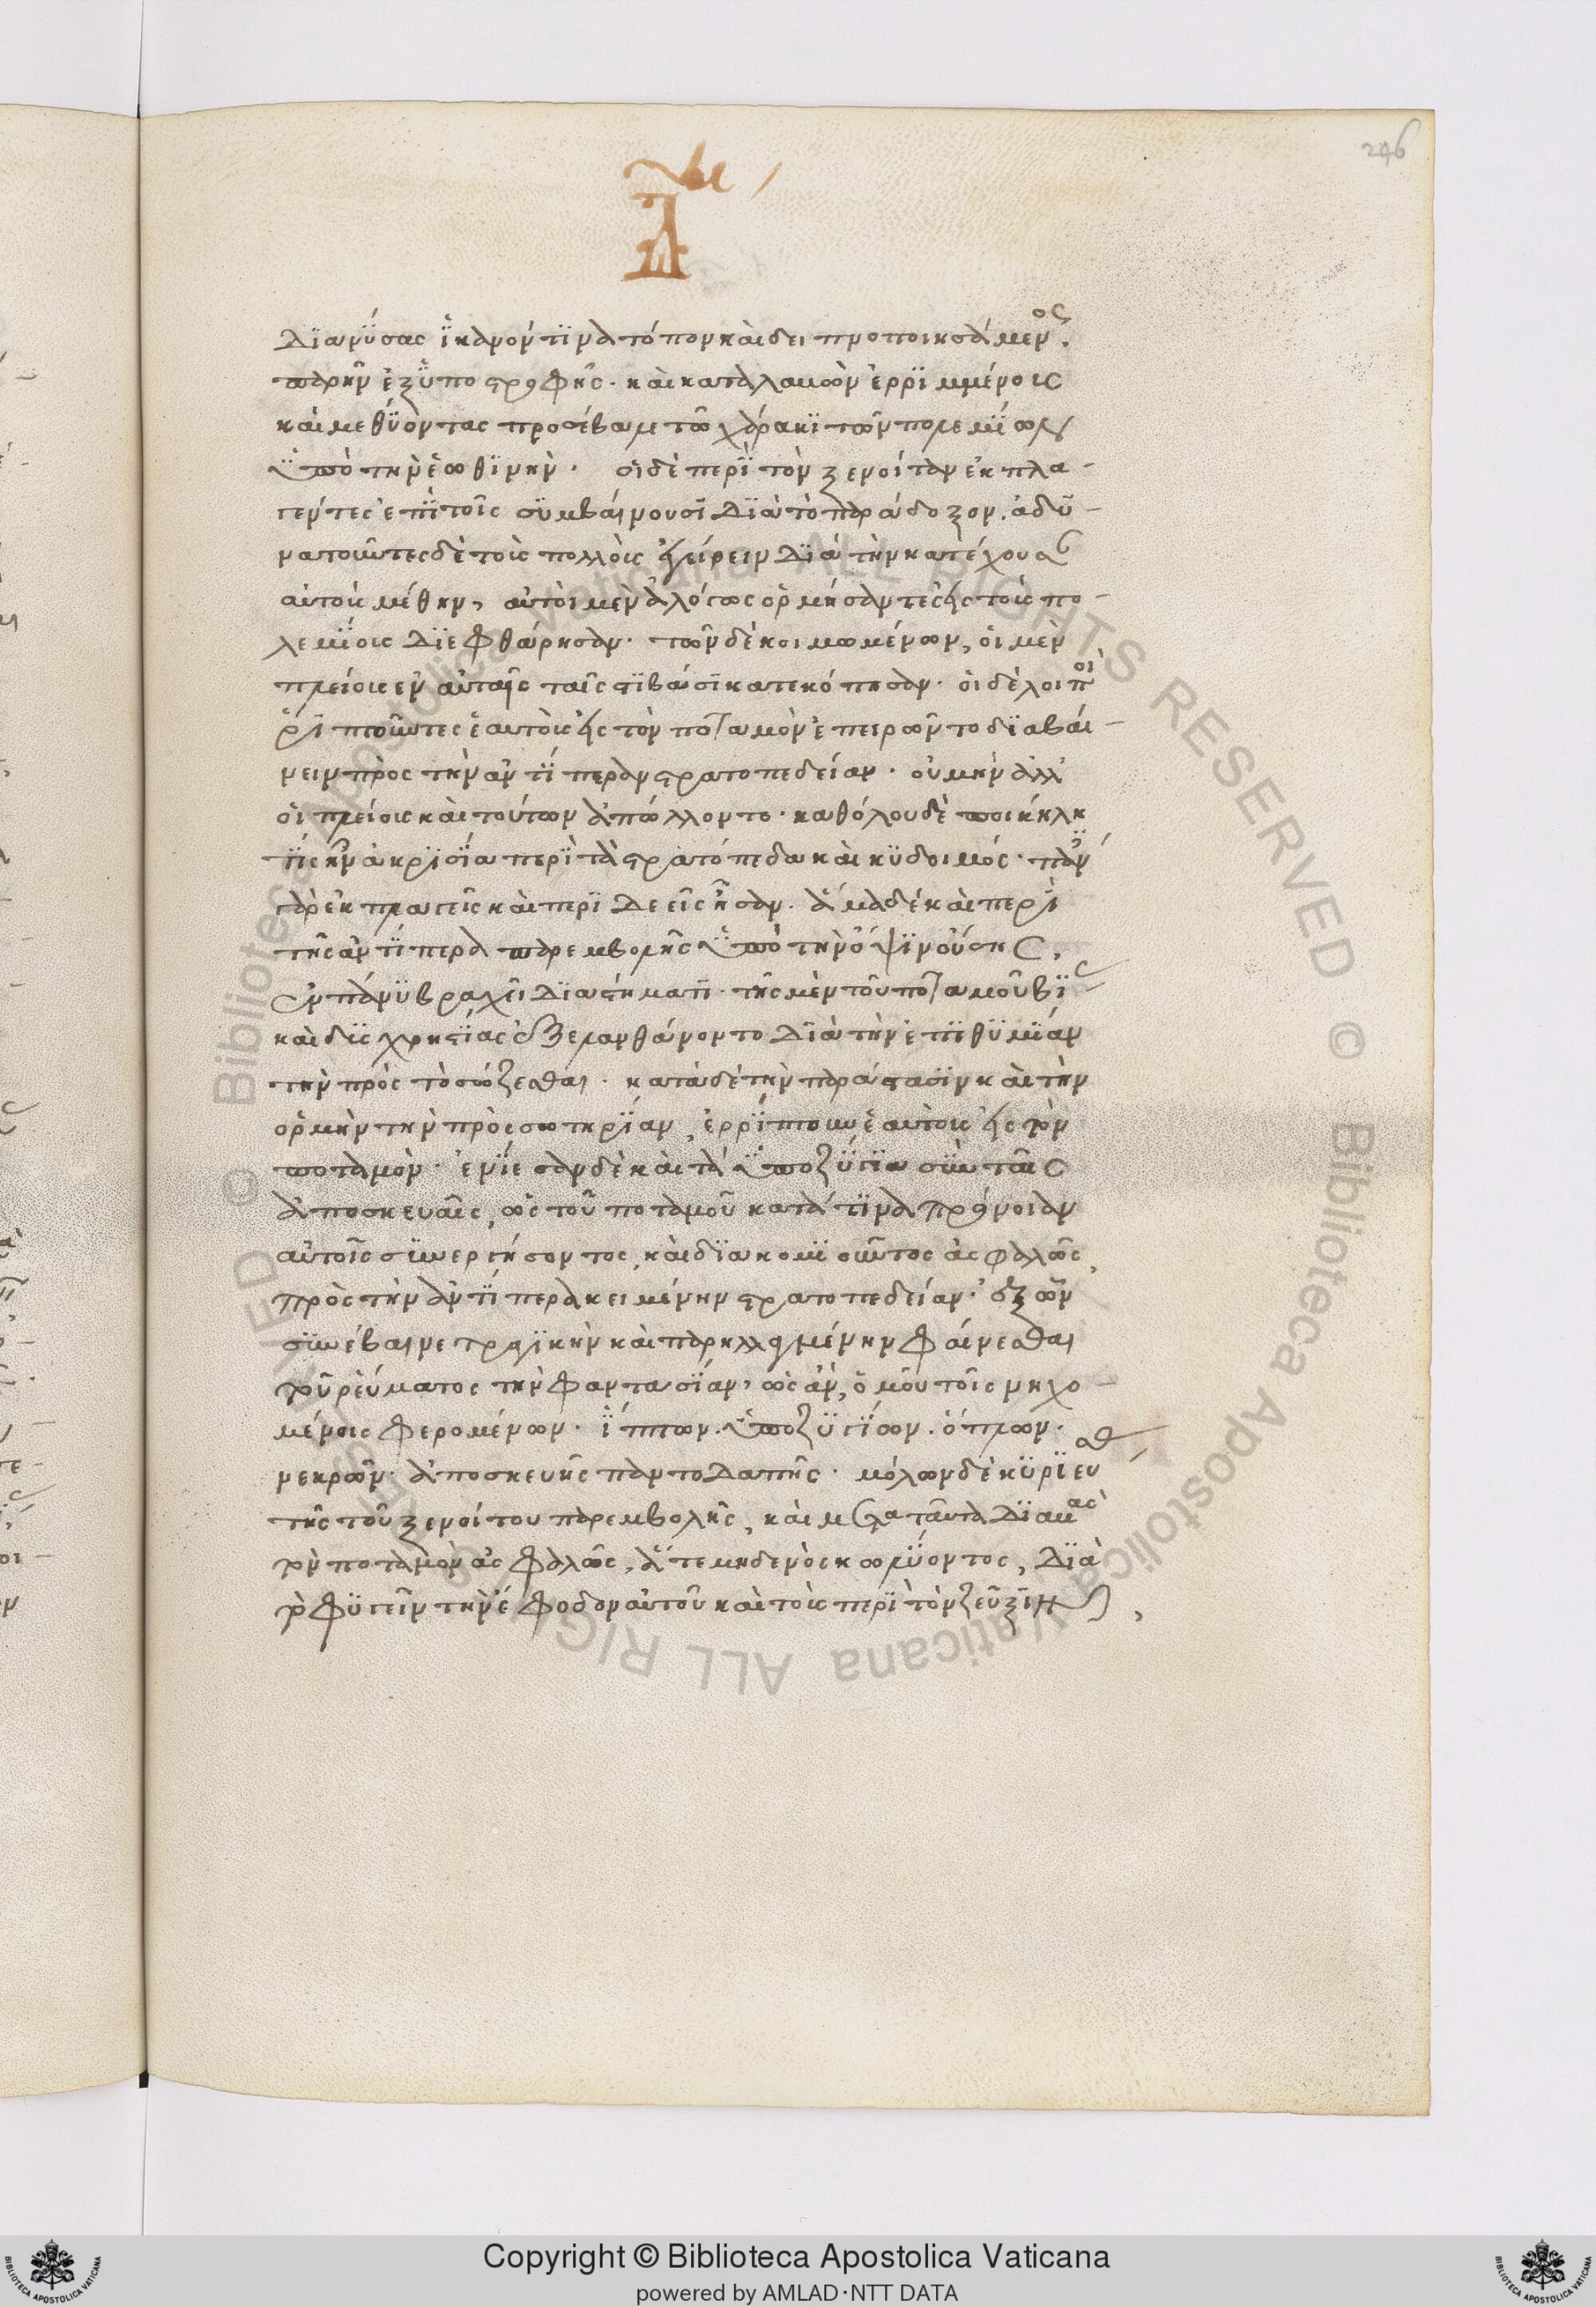 246
διανύσας ἱκανόν τινα τόπον καὶ δειπνοποιησάμενος.
παρῆν ἐξ ὑποστροφῆς. καὶ καταλαμβὼν ἐρριμμένους
καὶ μεθύοντας προσέβαλε τῶ χάρακι τῶν πολεμίων
ὑπὸ τὴν ἑωθινήν. οἱ δὲ περὶ τὸν ξενοίταν ἐκπλα-
γέντες ἐπὶ τοῖς συμβαίνουσι διὰ τὸ παράδοξον. ἀδυ-
νατοῦντες δὲ τοὺς πολλοὺς ἐγείρειν διὰ τὴν κατέχουσαν
αὐτοὺς μέθην, αὐτοὶ μὲν ἀλόγως ὁρμήσαντες εἰς τοὺς πο-
λεμίους διεφθάρησαν. τῶν δὲ κοιμωμένων, οἱ μὲν
πλείους ἐν αὐταῖς ταῖς στιβάσι κατεκόπησαν. οἱ δὲ λοιποὶ
ῥιπτοῦντες ἑαυτοὺς εἰς τὸν ποταμὸν ἐπειρῶντο διαβαί-
νειν πρὸς τὴν ἀντίπεραν στρατοπεδείαν. οὐ μὴν ἀλλ'
οἱ πλείους καὶ τούτων ἀπώλλοντο. καθόλου δὲ ποικίλη
τίς ἦν ἀκρισία περὶ τὰ στρατόπεδα καὶ κυδοιμός. πάν
γὰρ ἐκπλαγεῖς καὶ περιδεεῖς ἦσαν. ἅμα δὲ καὶ περὶ
τῆς ἀντίπερα παρεμβολῆς ὑπὸ τὴν ὄψιν οὔσης,
ἐν πάνυ βραχεῖ διαστήματι. τῆς μὲν τοῦ ποταμοῦ βίας
καὶ δυσχρηστίας ἐξελανθάνοντο διὰ τὴν ἐπιθυμίαν
τὴν πρὸς τὸ σώζεσθαι. κατὰ δὲ τὴν παράστασιν καὶ τὴν
ὁρμὴν τὴν πρὸς σωτηρίαν, ἐρρίπτουν ἑαυτοὺς εἰς τὸν
ποταμὸν. ἐνίεσαν δὲ καὶ τὰ ὑποζύγια σὺν ταῖς
ἀποσκευαῖς, ὡς τοῦ ποταμοῦ κατά τινα πρόνοιαν
αὐτοῖς συνεργήσοντος, καὶ διακομιοῦντος ἀσφαλῶς,
πρὸς τὴν ἀντίπερα κειμένην στρατοπεδείαν. ἐξ ὧν
συνέβαινε τραγικὴν καὶ παρηλλαγμένην φαίνεσθαι
τοῦ ῥεύματος τὴν φαντασίαν, ὡς ἀν, ὁμοῦ τοῖς νηχο-
μένοις φερομένων. ἵππων. ὑποζυγίων. ὅπλων.
νεκρῶν. ἀποσκευῆς παντοδαπῆς. μόλων δὲ κυριεύσας
τῆς τοῦ ξενοίτου παρεμβολῆς, καὶ μετὰ ταῦτα διαβὰς
τὸν ποταμὸν ἀσφαλῶς, ἅτε μηδενὸς κωλύοντος, διὰ
τὸ φυγεῖν τὴν ἔφοδον αὐτοῦ καὶ τοὺς περὶ τὸν ζεῦξιν,
© Biblioteca Apostolica Vaticana ALL RIGHTS RESERVED
Copyright © Biblioteca Apostolica Vaticana
powered by AMLAD·NTT DATA
BIBLIOTECA APOSTOLICA VATICANA
BIBLIOTECA APOSTOLICA VATICANA